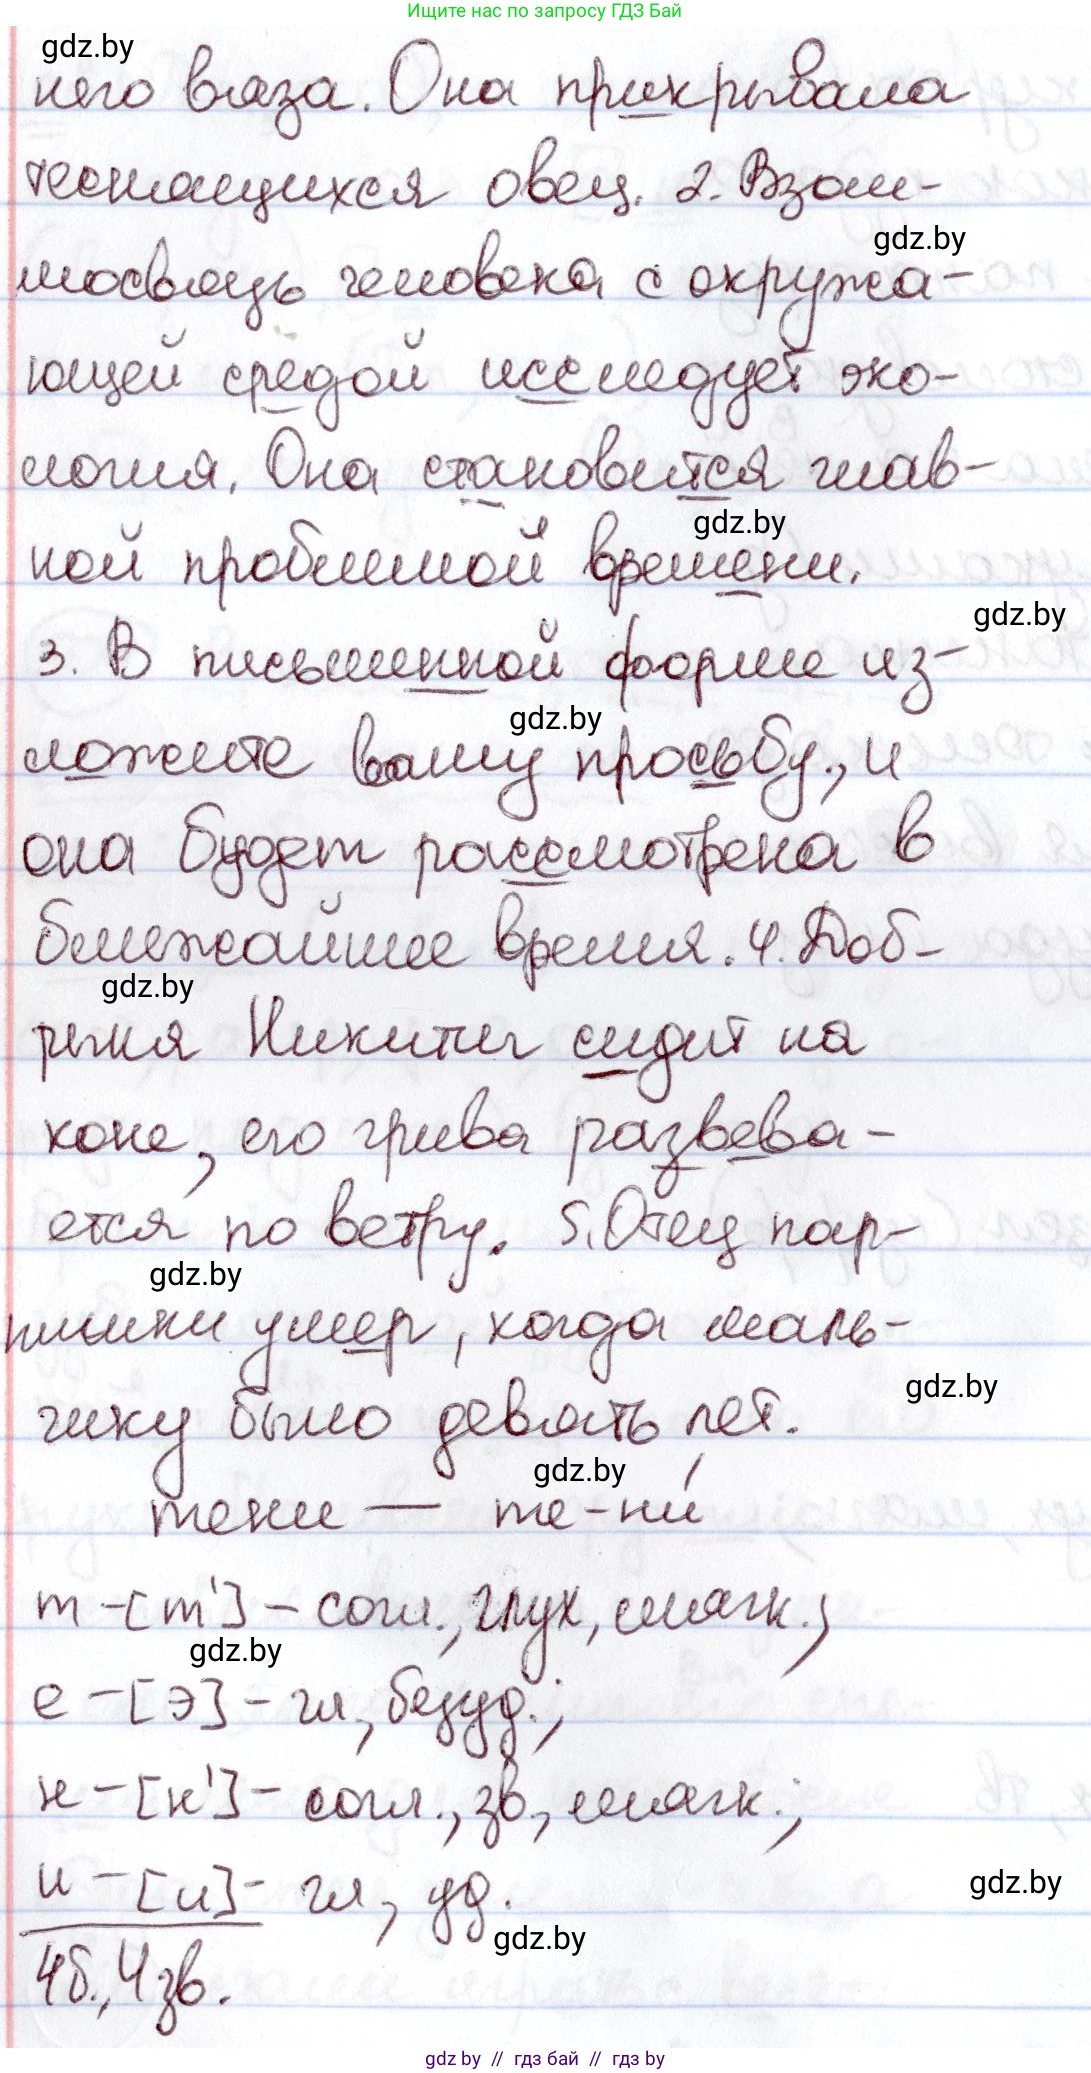 Ищите нас по запросу ГДЗ Бай
gdz.by
него вяза. Она прикрывала
теснящихся овец. 2. Взаи-
gdz.by
мосвязь человека с окружа-
ющей средой исследует эко-
логия. Она становится глав-
gdz.by
ной проблемой времени.
gdz.by
3. В письменной форме из-
gdz.by
ложите вашу просьбу, и
она будет рассмотрена в
ближайшее время. 4. Доб-
gdz.by
рыня Никитич сидит на
коне, его грива развева-
ется по ветру. 5. Отец пар-
gdz.by
нишки умер, когда маль-
gdz.by
чику было девять лет.
gdz.by
тени — те-ни́
т - [т'] - согл., глух, мягк.;
gdz.by
е - [э] - гл, безуд.;
н - [н'] - согл., зв., мягк.;
и - [и] - гл, уд.
gdz.by
gdz.by
4б., 4зв.
gdz.by // гдз бай // гдз by